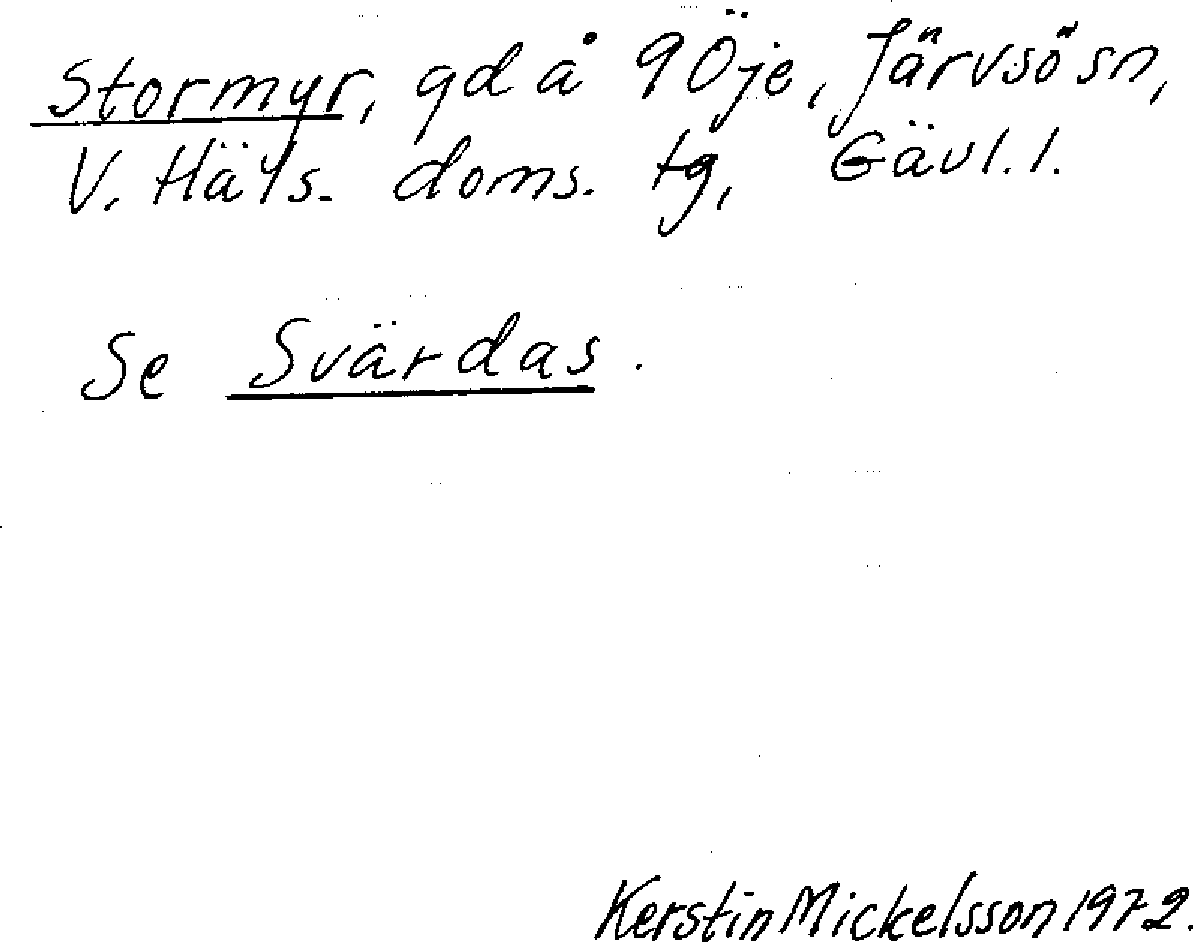 Stormyr, gd å 9 Öje, Järvsö sn,
V. Häls. doms. tg, Gävl. l.
Se Svärdas.
Kerstin Mickelsson 1972.